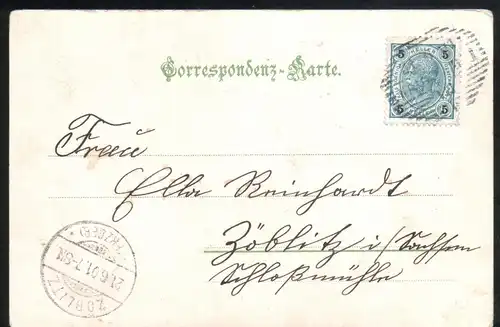 Correspondenz-Karte.
5 5
HELLER
5 5
Frau
Ella Reinhardt
Zöblitz i/Sachsen
Schloßmühle
(ERZGEB)
21.6.01.7-8N.
ZÖBLITZ